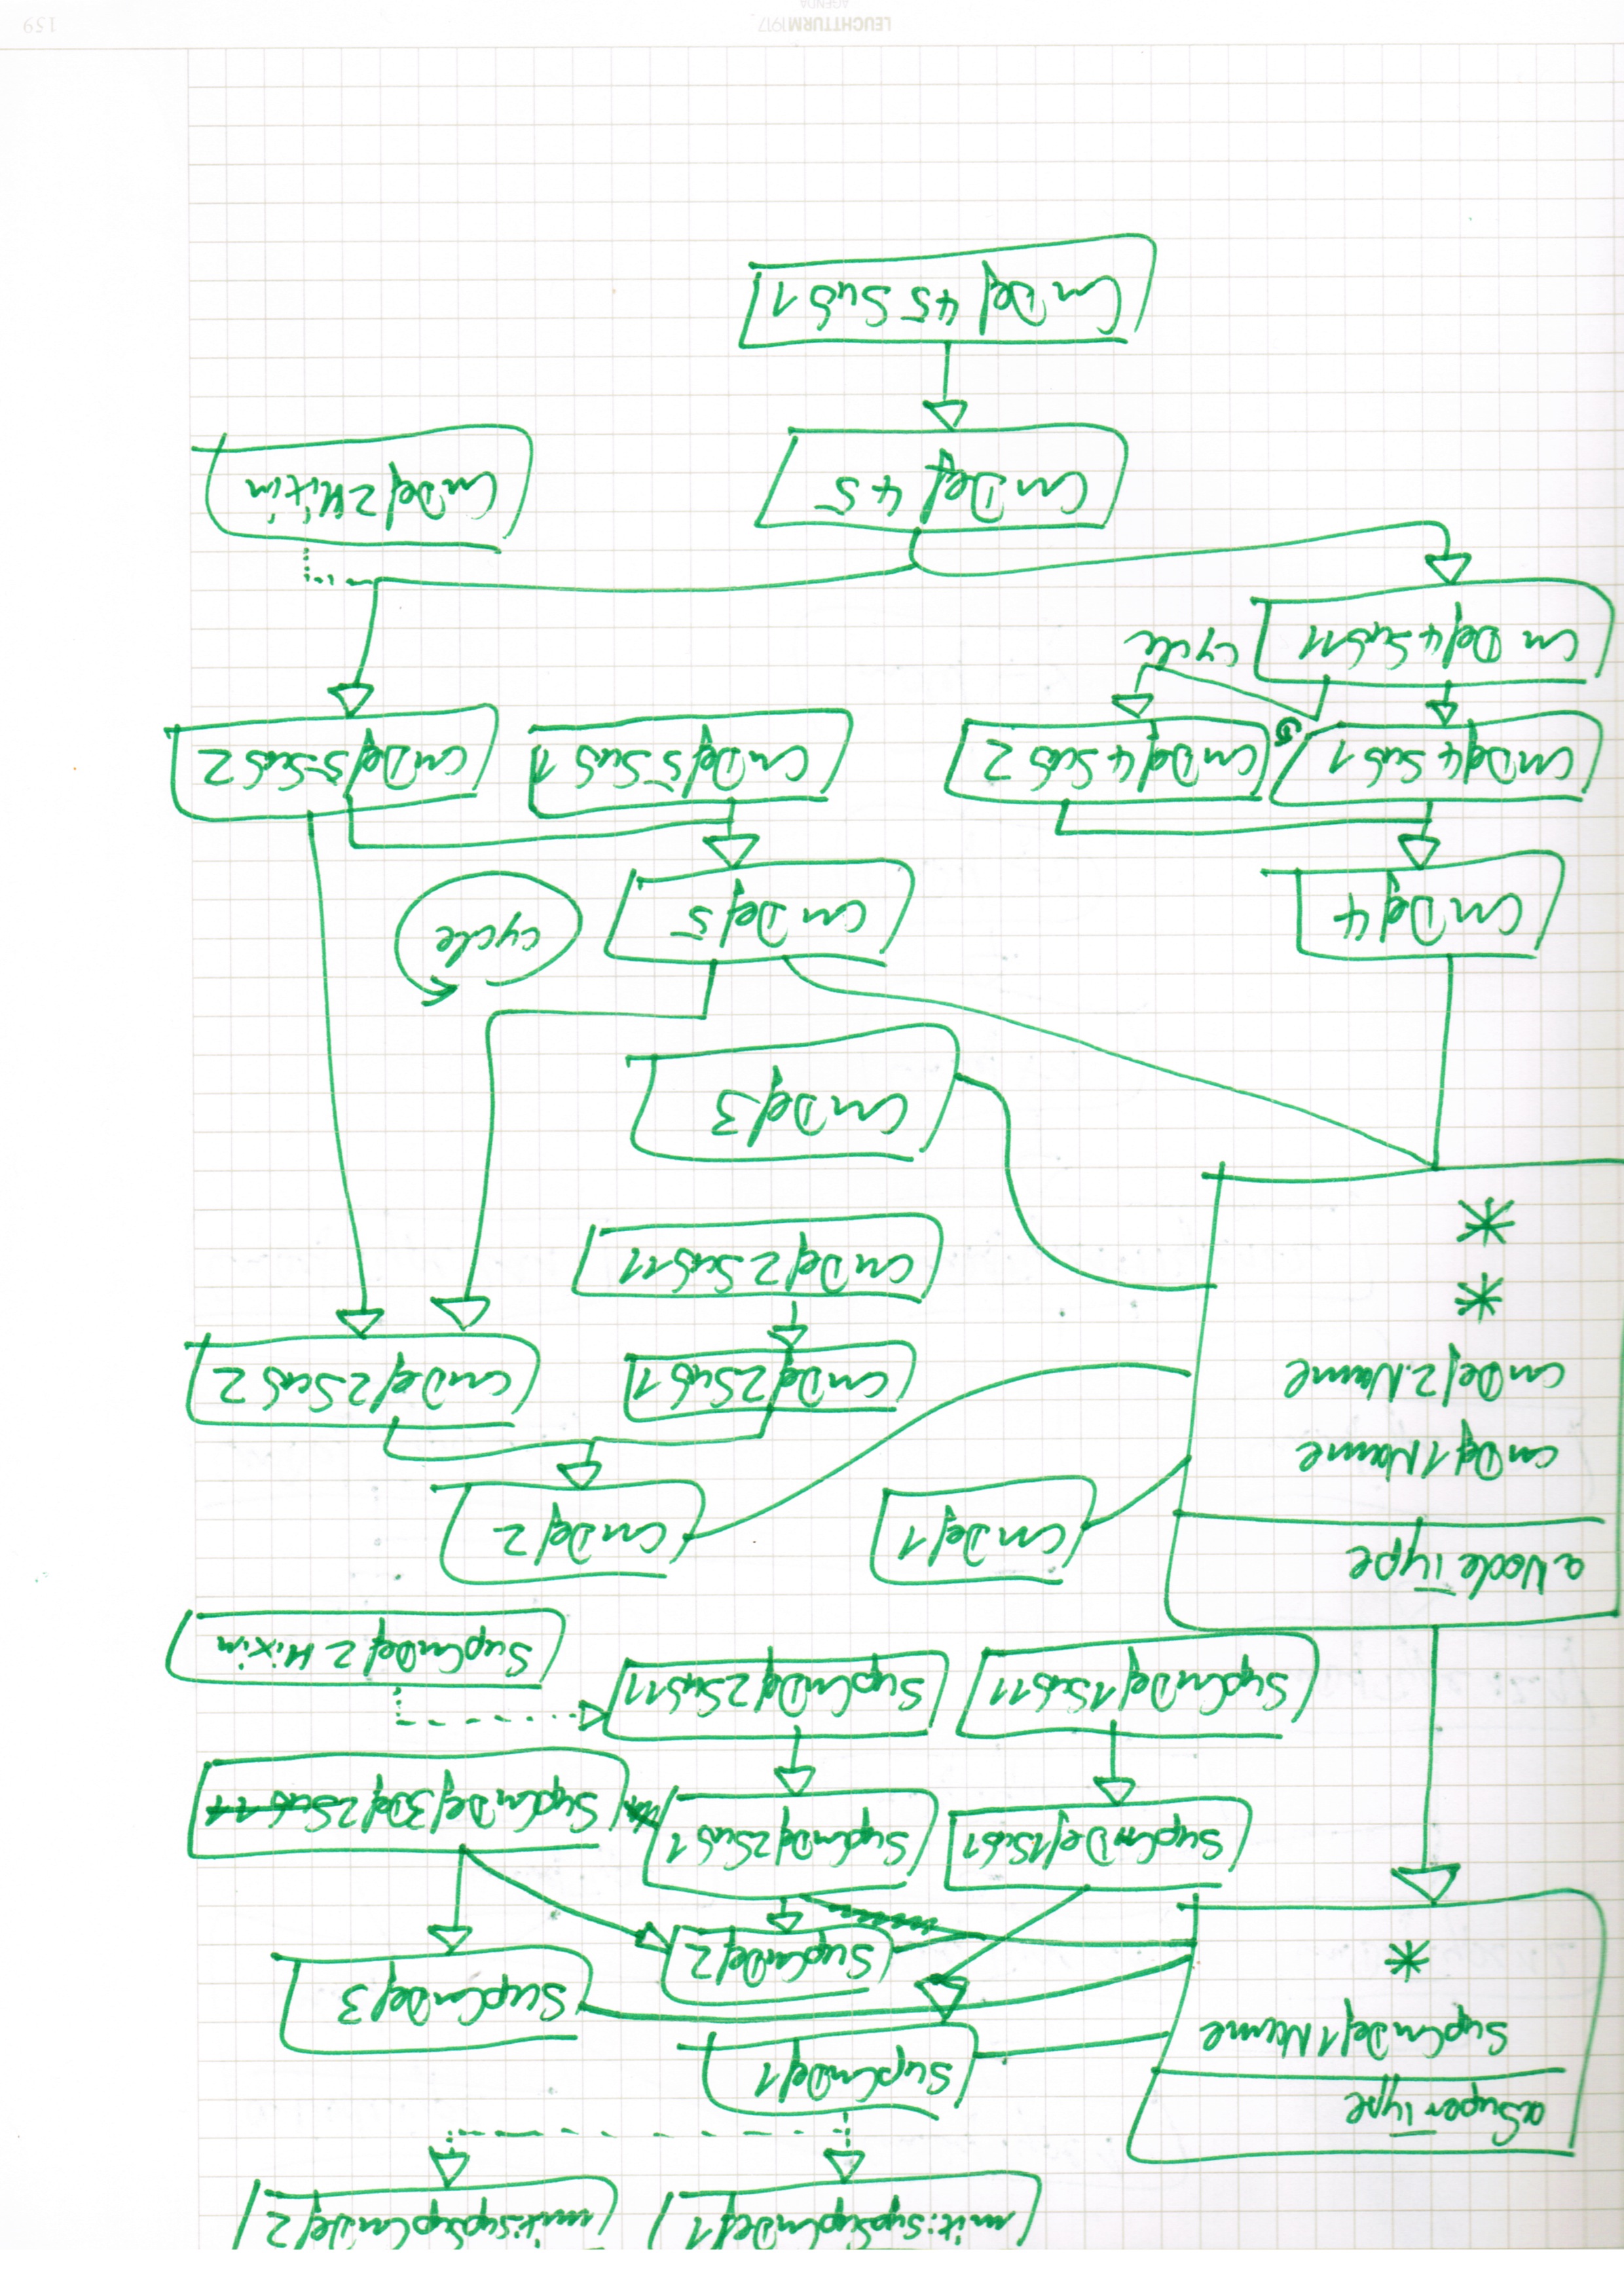 mix:supSupCnDef1
mix:supSupCnDef2
aSuperType
SupCnDef1Name
*
SupCnDef1
SupCnDef3
SupCnDef2
SupCnDef1Sub1
SupCnDef2Sub1
SupCnDef3Def2Sub11
SupCnDef1Sub11
SupCnDef2Sub11
SupCnDef2Mixin
aNodeType
cnDef1Name
cnDef2.Name
*
*
cnDef1
cnDef2
cnDef2Sub1
cnDef2Sub2
cnDef2Sub11
cnDef3
cycle
cnDef4
cnDef5
cnDef4Sub1
cnDef4Sub2
cnDef5Sub1
cnDef5Sub2
cnDef4Sub11
cycle
cnDef45
CnDef2Mixin
CnDef45Sub1
LEUCHTTURM1917
AGENDA
159